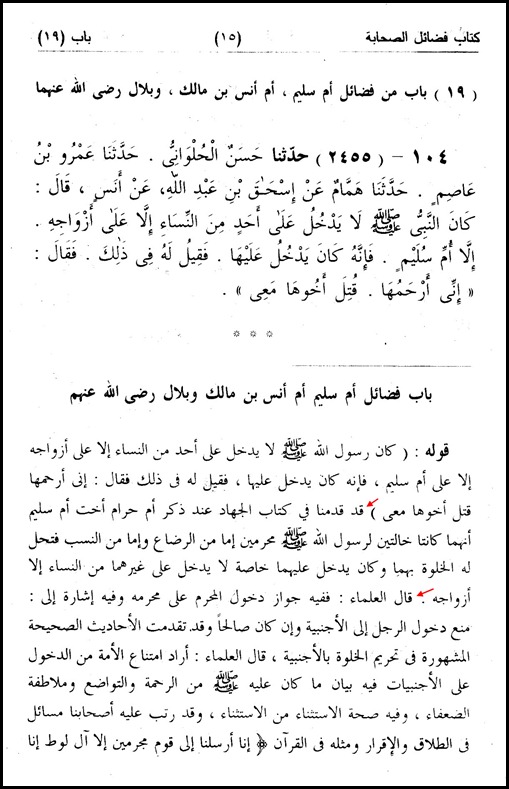 كتاب فضائل الصحابة (١٥) باب (١٩)
( ١٩ ) باب من فضائل أم سليم ، أم أنس بن مالك ، وبلال رضى الله عنهما
١٠٤ - ( ٢٤٥٥ ) حدّثنا حَسَنٌ الْحُلْوَانِىُّ . حَدَّثَنَا عَمْرُو بْنُ
عَاصِمٍ . حَدَّثَنَا هَمَّامٌ عَنْ إِسْحَٰقَ بْنِ عَبْدِ اللَّهِ، عَنْ أَنَسٍ ، قَالَ :
كَانَ النَّبِىُّ ﷺ لَا يَدْخُلُ عَلَىٰ أَحَدٍ مِنَ النِّسَاءِ إِلَّا عَلَىٰ أَزْوَاجِهِ .
إِلَّا أُمِّ سُلَيْمٍ . فَإِنَّهُ كَانَ يَدْخُلُ عَلَيْهَا . فَقِيلَ لَهُ فِى ذَٰلِكَ . فَقَالَ :
« إِنِّى أَرْحَمُهَا . قُتِلَ أَخُوهَا مَعِى » .
* * *
باب فضائل أم سليم أم أنس بن مالك وبلال رضى الله عنهم
قوله : ( كان رسول الله ﷺ لا يدخل على أحد من النساء إلا على أزواجه
إلا على أم سليم ، فإنه كان يدخل عليها ، فقيل له فى ذلك فقال : إنى أرحمها
قتل أخوها معى ) قد قدمنا في كتاب الجهاد عند ذكر أم حرام أخت أم سليم
أنهما كانتا خالتين لرسول الله ﷺ محرمين إما من الرضاع وإما من النسب فتحل
له الخلوة بهما وكان يدخل عليهما خاصة لا يدخل على غيرهما من النساء إلا
أزواجه . قال العلماء : ففيه جواز دخول المحرم على محرمه وفيه إشارة إلى :
منع دخول الرجل إلى الأجنبية وإن كان صالحاً وقد تقدمت الأحاديث الصحيحة
المشهورة فى تحريم الخلوة بالأجنبية ، قال العلماء : أراد امتناع الأمة من الدخول
على الأجنبيات فيه بيان ما كان عليه ﷺ من الرحمة والتواضع وملاطفة
الضعفاء ، وفيه صحة الاستثناء من الاستثناء ، وقد رتب عليه أصحابنا مسائل
فى الطلاق والإقرار ومثله فى القرآن ﴿ إنا أرسلنا إلى قوم مجرمين إلا آل لوط إنا